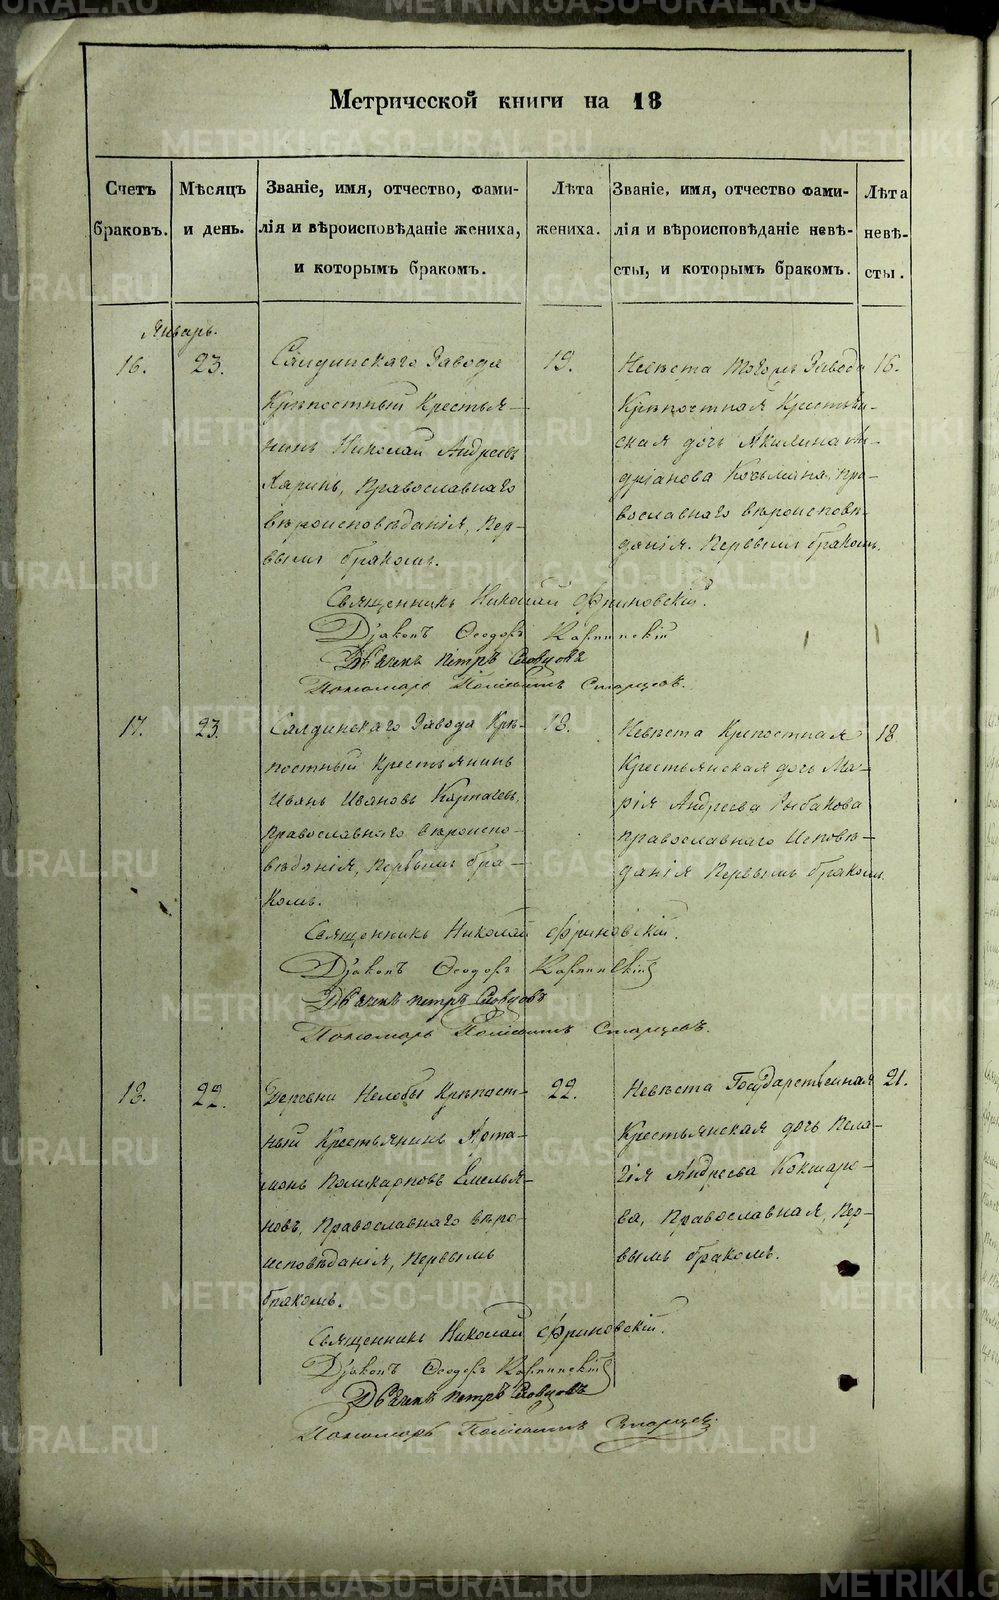 Метрической книги на 18
Счетъ браковъ.
Мѣсяцъ и день.
Званіе, имя, отчество, фами-
лія и вѣроисповѣданіе жениха,
и которымъ бракомъ.
Лѣта жениха.
Званіе, имя, отчество фами-
лія и вѣроисповѣданіе невѣ-
сты, и которымъ бракомъ.
Лѣта невѣ-
сты.
Январь.
16.
23.
Салдинскаго Завода
Крѣпостный Крестья-
нинъ Николай Андреевъ
Ларинъ, Православнаго
вѣроисповѣданія, Пер-
вымъ бракомъ.
19.
Невѣста тогожъ Завода
Крѣпостная Крестьян-
ская дочь Акилина Ан-
дріанова Козьмина, Пра-
вославнаго вѣроисповѣ-
данія. Первымъ бракомъ.
16.
Священникъ Николай Фриновскій.
Діаконъ Ѳеодоръ Карпинскій
Дьячекъ Петръ Словцовъ
Пономарь Старцовъ.
17.
23.
Салдинскаго Завода Крѣ-
постный Крестьянинъ
Иванъ Ивановъ
Православнаго вѣроиспо-
вѣданія, Первымъ бра-
комъ.
18.
Невѣста Крепостная
Крестьянская дочь Ма-
рія Андреева Рыбакова
Православнаго Исповѣ-
данія Первымъ бракомъ.
18
Священникъ Николай Фриновскій.
Діаконъ Ѳеодоръ Карпинскій
Дьячекъ Петръ Словцовъ
Пономарь Старцовъ.
18.
22.
Деревни Нелобы Крѣпост-
ный Крестьянинъ Арта-
монъ Поликарповъ Емелья-
новъ, Православнаго вѣро-
исповѣданія, Первымъ
бракомъ.
22.
Невѣста Государственная
Крестьянская дочь Пела-
гія Андреева Кокшаро-
ва, Православная, Пер-
вымъ бракомъ.
21.
Священникъ Николай Фриновскій.
Діаконъ Ѳеодоръ Карпинскій
Дьячекъ Петръ Словцовъ
Пономарь Старцовъ.
METRIKI.GASO-URAL.RU